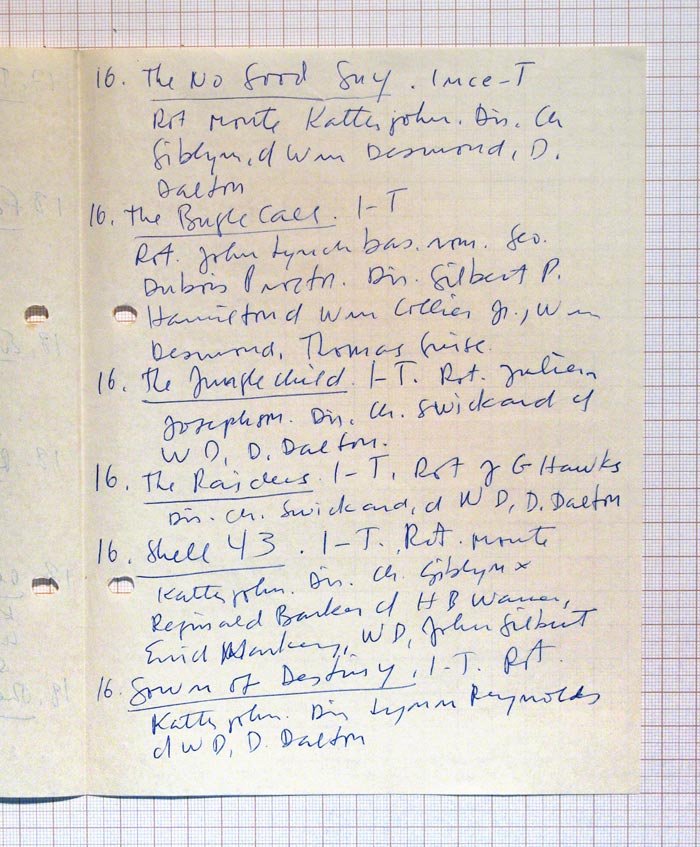 16. The No Good Guy. Ince-T
Rot Monte Katterjohn. Dir. Ch
Giblyn, d Wm Desmond, D.
Dalton
16. The Bugle Call. I-T
Rot. John Lynch bas. nom. Geo.
Dubois Proctor. Dir. Gilbert P.
Hamilton d Wm Collier Jr., Wm
Desmond, Thomas Guise.
16. The Jungle Child. I-T. Rot. Julien
Josephson. Dir. Ch. Swickard d
WD, D. Dalton.
16. The Raiders. I-T. Rot J G Hawks
Dir. Ch. Swickard, d WD, D. Dalton
16. Shell 43. I-T. Rot. Monte
Katterjohn. Dir. Ch. Giblyn x
Reginald Barker d H B Warner,
Enid Markey, WD, John Gilbert
16. Gown of Destiny. I-T. Rot.
Katterjohn. Dir Lynn Reynolds
d WD, D. Dalton